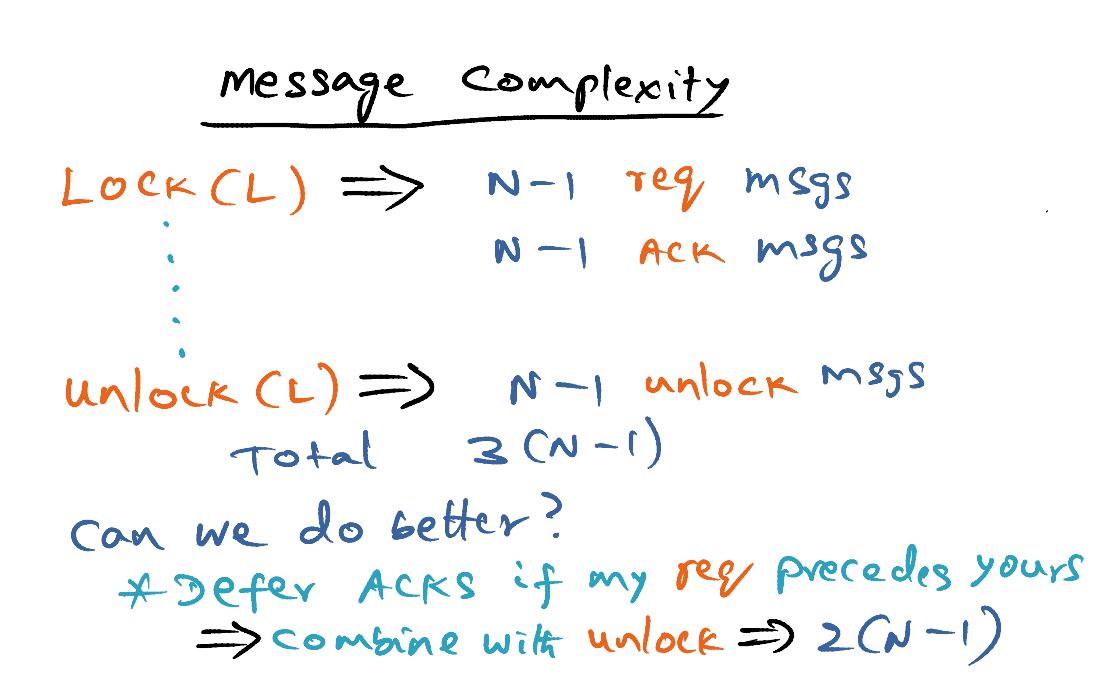 Message Complexity
Lock(L) ⇒ N-1 req msgs
N-1 ACK msgs
unlock(L) ⇒ N-1 unlock msgs
Total 3(N-1)
can we do better?
* Defer ACKS if my req precedes yours
⇒ combine with unlock ⇒ 2(N-1)